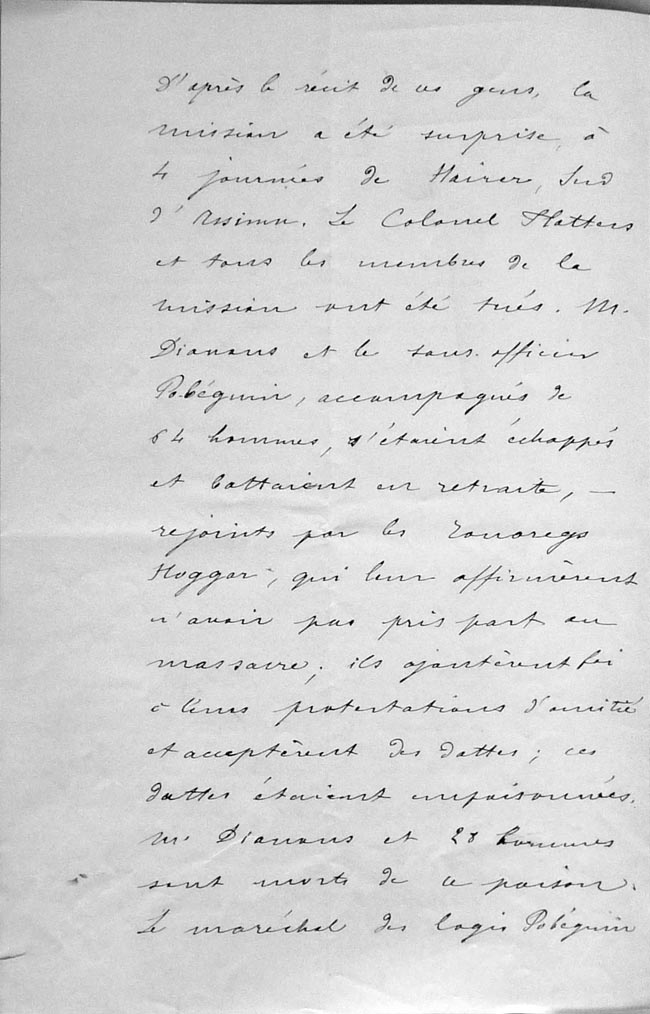 D'après le récit de ces gens, la
mission a été surprise à
4 journées de Hairer, Sud
d'Assiou. Le Colonel Flatters
et tous les membres de la
mission ont été tués. M.
Dianous et le sous-officier
Pobéguin, accompagnés de
64 hommes, s'étaient échappés
et battaient en retraite, —
rejoints par les Touaregs
Hoggar, qui leur affirmèrent
n'avoir pas pris part au
massacre; ils ajoutèrent foi
à leurs protestations d'amitié
et acceptèrent des dattes; ces
dattes étaient empoisonnées.
Mr Dianous et 28 hommes
sont morts de ce poison.
Le maréchal des logis Pobéguin